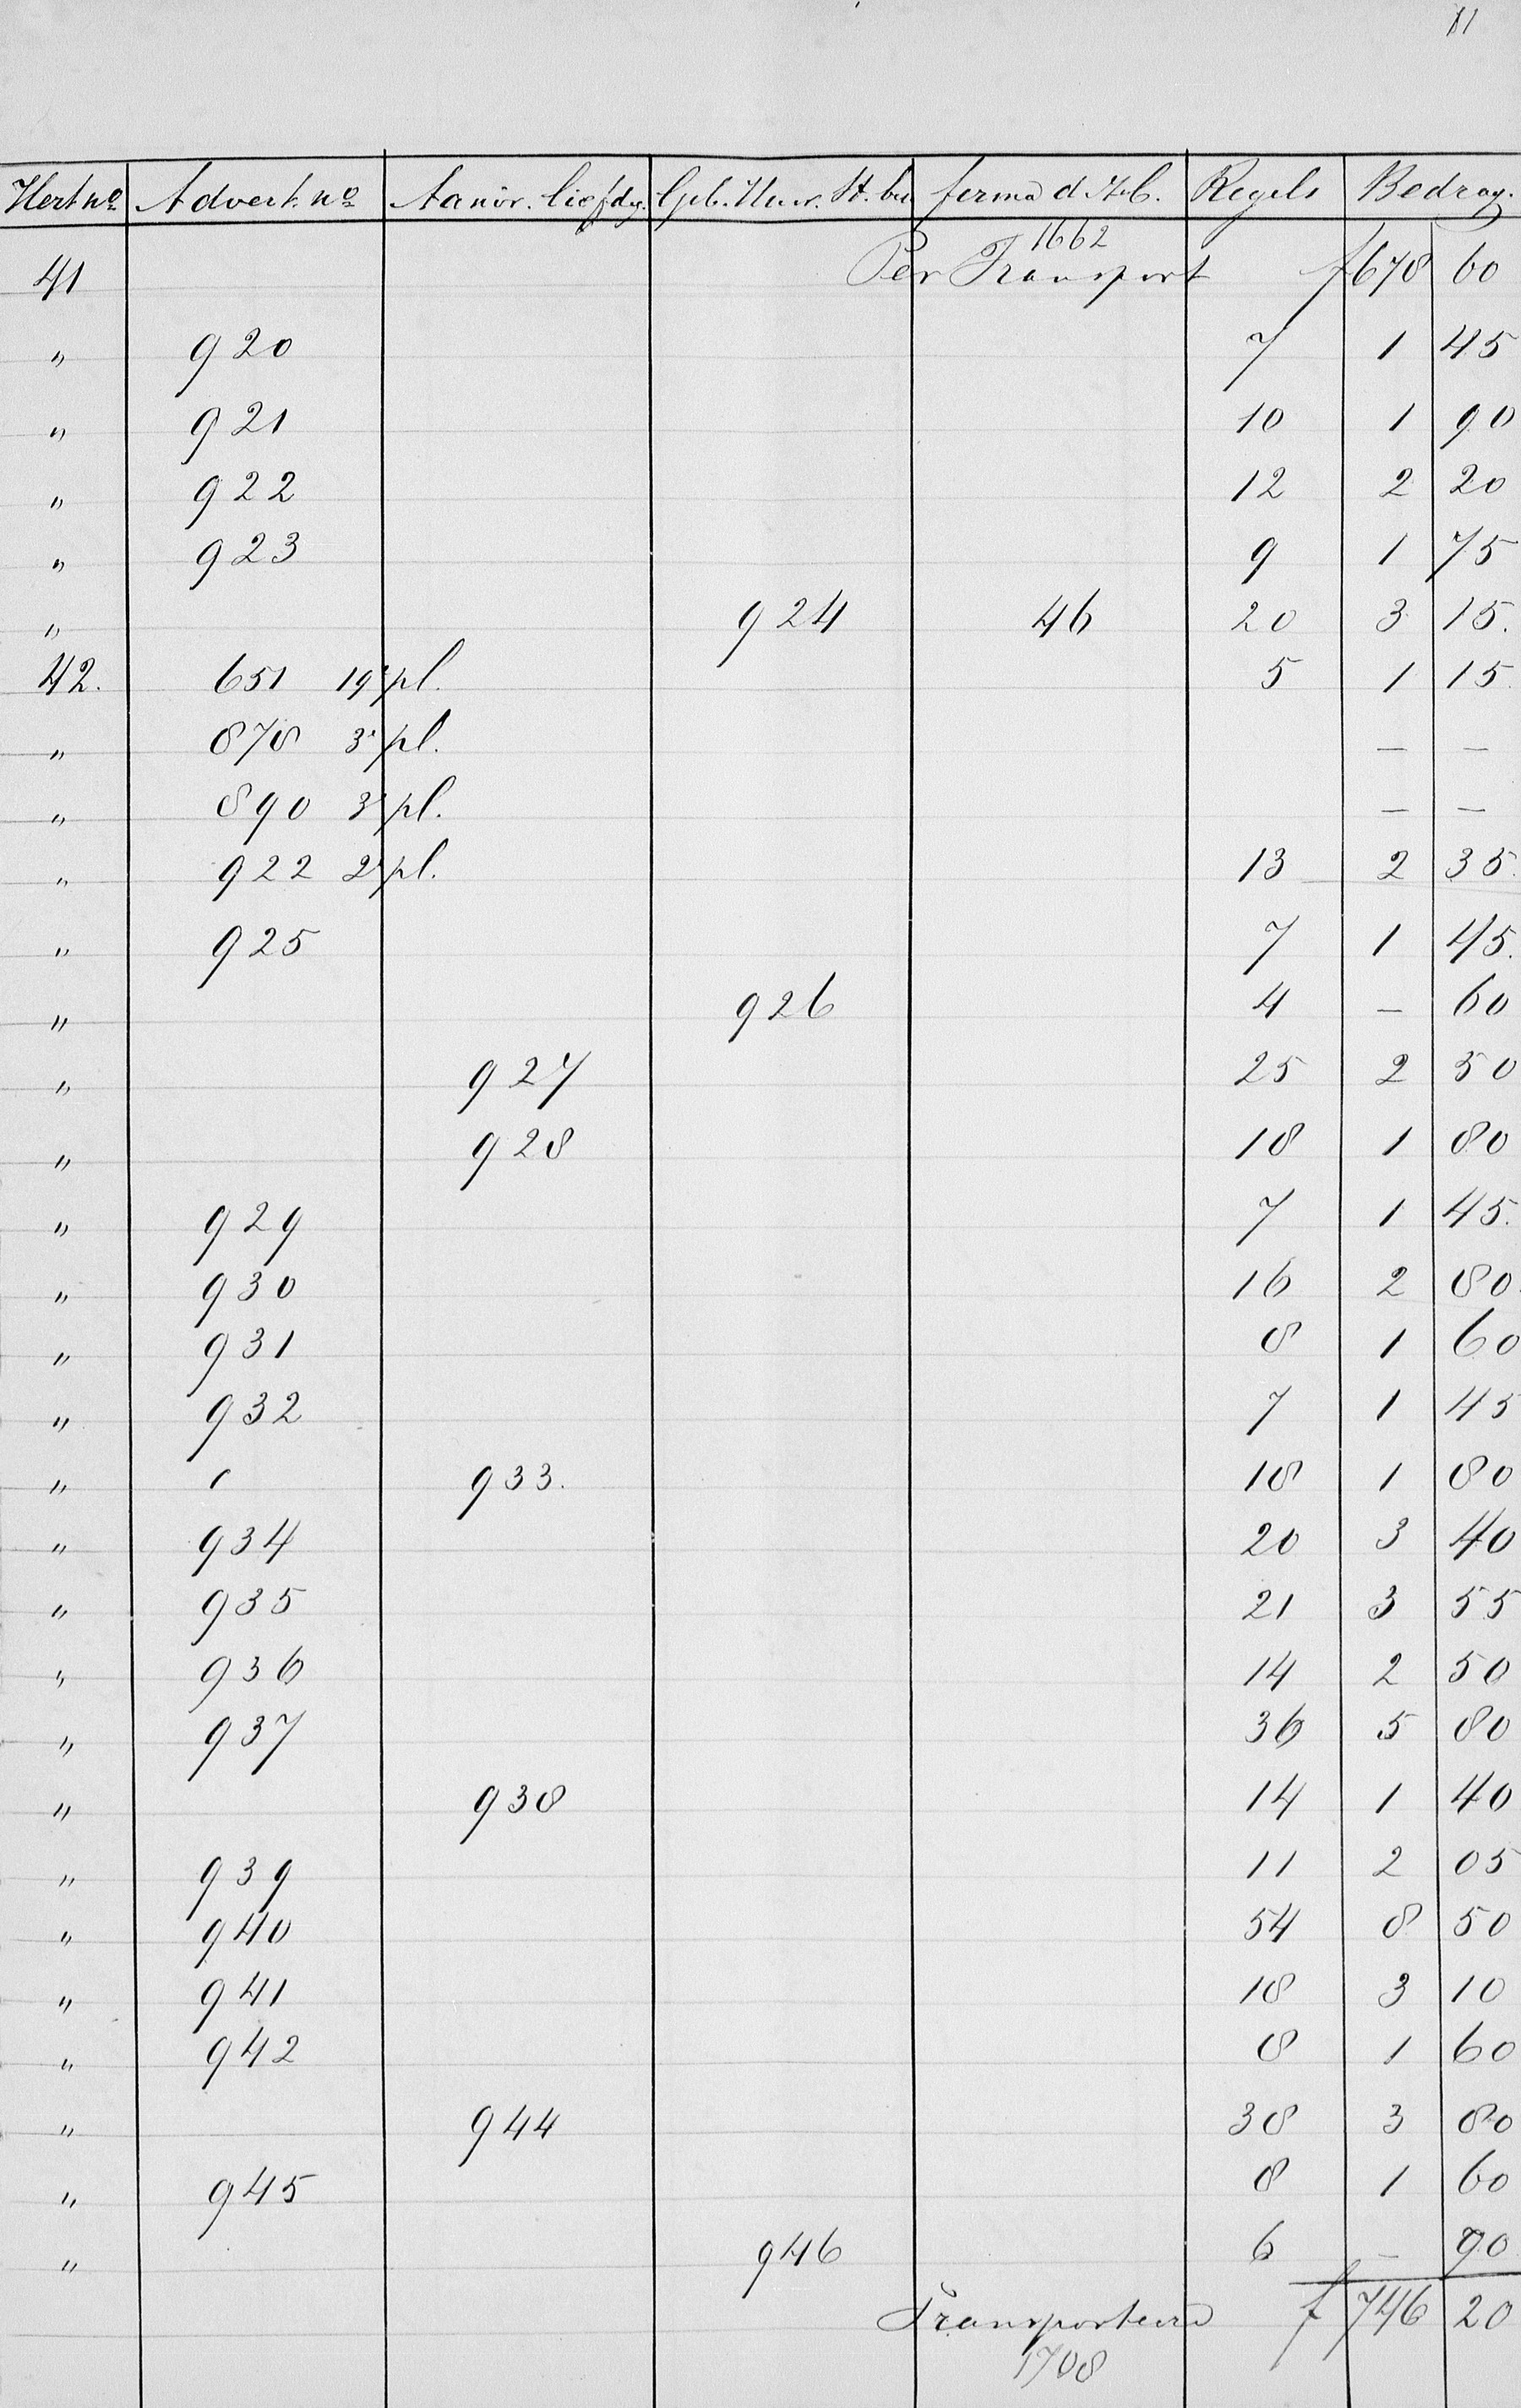 11
Advert. no Regels Bedrag.
1662
41 Per Transport f 678 60
" 920 7 1 45
" 921 10 1 90
" 922 12 2 20
" 923 9 1 75
" 924 46 20 3 15.
42. 651 19e pl. 5 1 15.
" 878 3e pl. — —
" 890 3e pl. — —
" 922 2e pl. 13 2 35.
" 925 7 1 45.
" 926 4 — 60
" 927 25 2 50
" 928 18 1 80
" 929 7 1 45.
" 930 16 2 80.
" 931 8 1 60
" 932 7 1 45
" 933. 18 1 80
" 934 20 3 40
" 935 21 3 55
" 936 14 2 50
" 937 36 5 80
" 938 14 1 40
" 939 11 2 05
" 940 54 8 50
" 941 18 3 10
" 942 8 1 60
" 944 38 3 80
" 945 8 1 60
" 946 6 — 90
f 746 20
1708